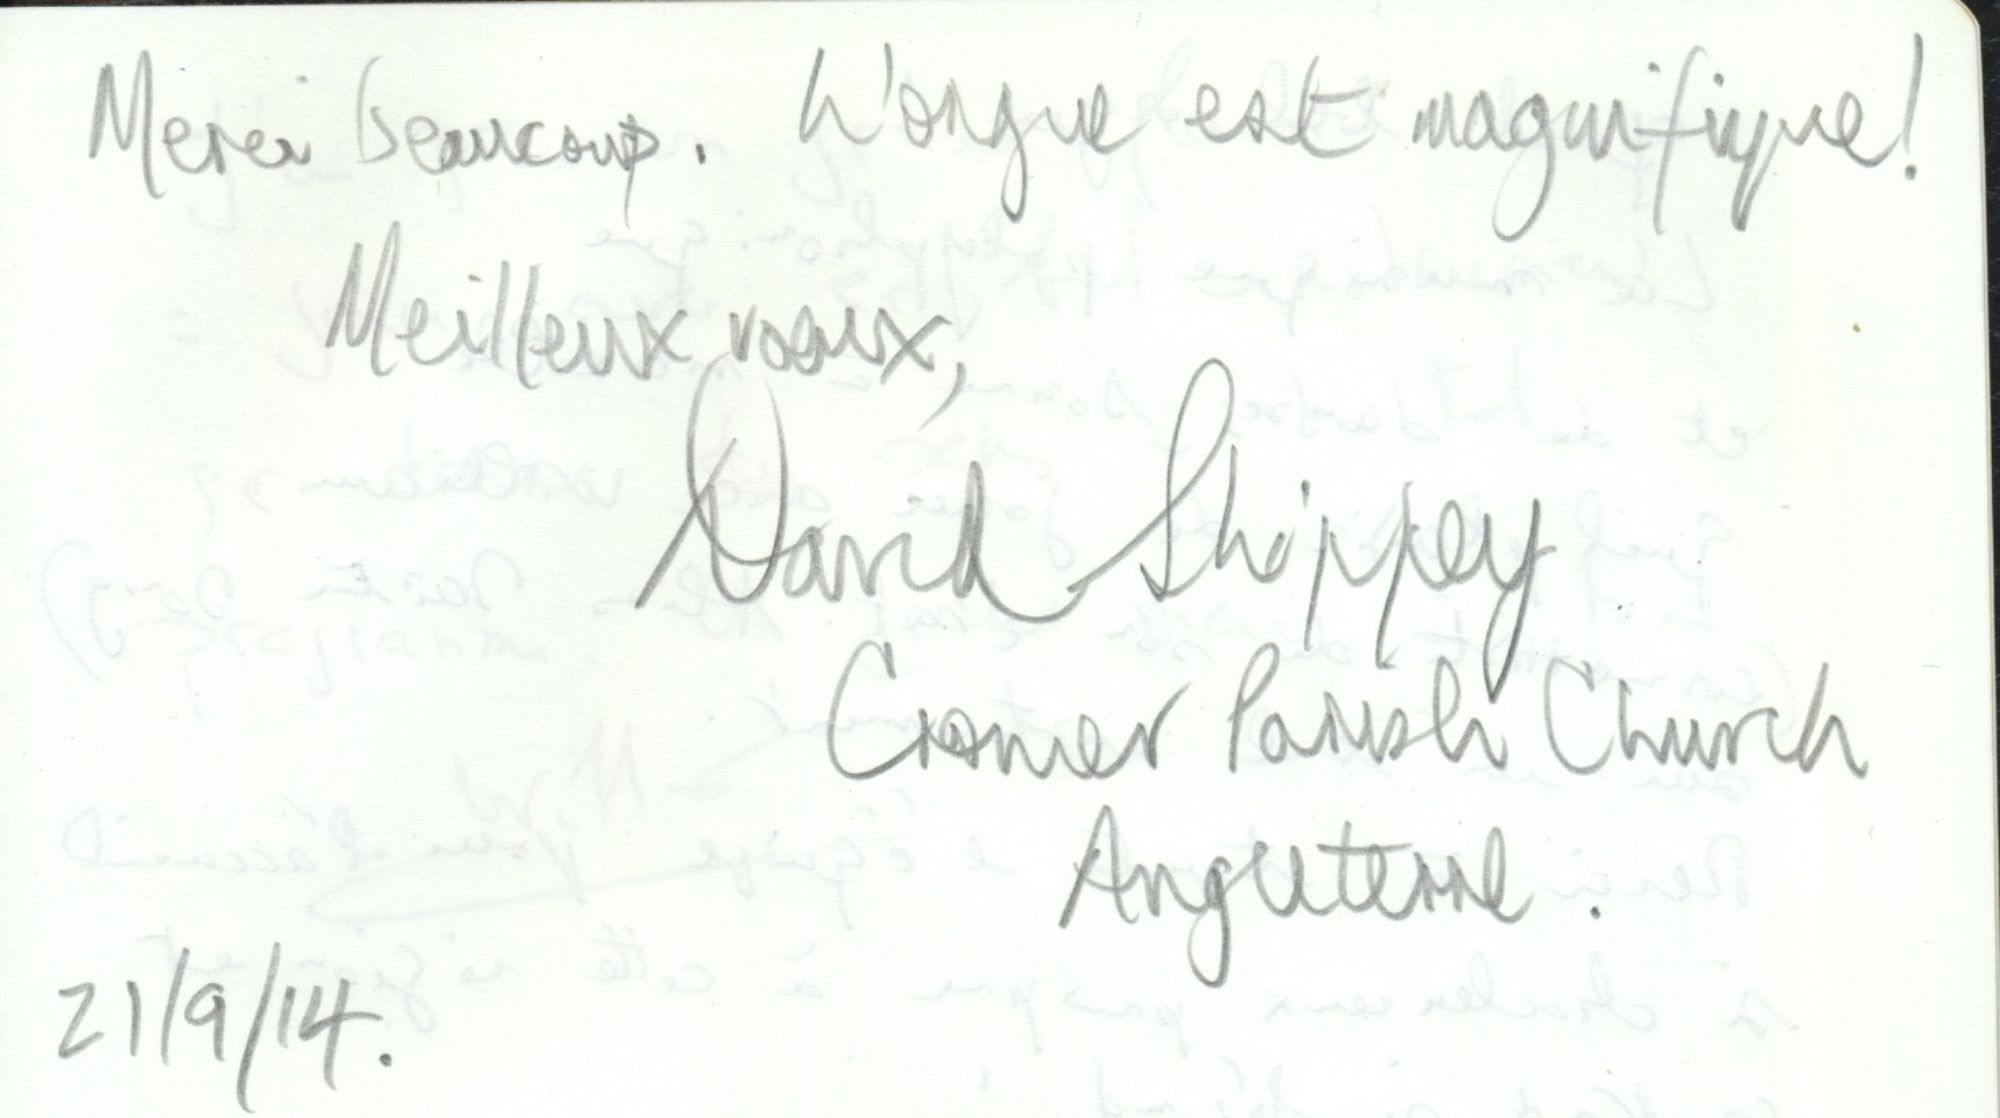 Merci beaucoup. L'orgue est magnifique!
Meilleux voeux,
David Shippey
Cromer Parish Church
Angleterre.
21/9/14.